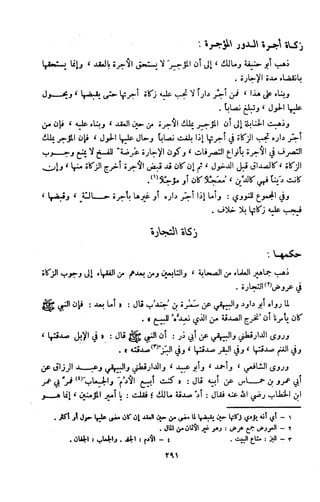 زكاة أجرة الدور المؤجرة :
ذهب أبو حنيفة ومالك ، إلى أن المؤجر لا يستحق الأجرة بالعقد ، وإنما يستحقها
بانقضاء مدة الإجارة .
وبناء على هذا ، فمن أجر داراً لا تجب عليه زكاة أجرتها حتى يقبضها ، ويحول
عليها الحول ، وتبلغ نصاباً .
وذهبت الحنابلة إلى أن المؤجر يملك الأجرة من حين العقد ، وبناء عليه ، فإن من
أجر داره تجب الزكاة في أجرتها إذا بلغت نصاباً وحال عليها الحول ، فإن المؤجر يملك
التصرف في الأجرة بأنواع التصرفات ، وكون الإجارة عرضة للفسخ لا يمنع وجوب
الزكاة ، كالصداق قبل الدخول ، ثم إن كان قد قبض الأجرة أخرج الزكاة منها ، وإن
كانت ديناً فهي كالدين ، معجلاً كان أو مؤجلاً (١) .
وفي المجموع للنووي : وأما إذا أجر داره أو غيرها بأجرة حالة ، وقبضها ،
فيجب عليه زكاتها بلا خلاف .
زكاة التجارة
حكمها :
ذهب جماهير العلماء من الصحابة ، والتابعين ومن بعدهم من الفقهاء إلى وجوب الزكاة
في عروض (٢) التجارة .
لما رواه أبو داود والبيهقي عن سمرة بن جندب قال : « أما بعد : فإن النبي ﷺ
كان يأمرنا أن نخرج الصدقة من الذي نعده للبيع » .
وروى الدارقطني والبيهقي عن أبي ذر : أن النبي ﷺ قال : « في الإبل صدقتها ،
وفي الغنم صدقتها ، وفي البقر صدقتها ، وفي البز (٣) صدقته » .
وروى الشافعي ، وأحمد ، وأبو عبيد ، والدارقطني والبيهقي وعبد الرزاق عن
أبي عمرو بن حماس عن أبيه قال : « كنت أبيع الأدم والجعاب (٤) فمر بي عمر
ابن الخطاب رضي الله عنه فقال : أد صدقة مالك ؛ فقلت : يا أمير المؤمنين ، إنما هو
١ - أي أنه يؤدي زكاتها حين يقبضها لما مضى من حين العقد إن كان مضى عليها حول أو أكثر .
٢ - العروض جمع عرض : وهو غير الأثمان من المال .
٣ - البز : متاع البيت . ٤ - الأدم : الجلد . والجعاب : الجفان .
٢٩١